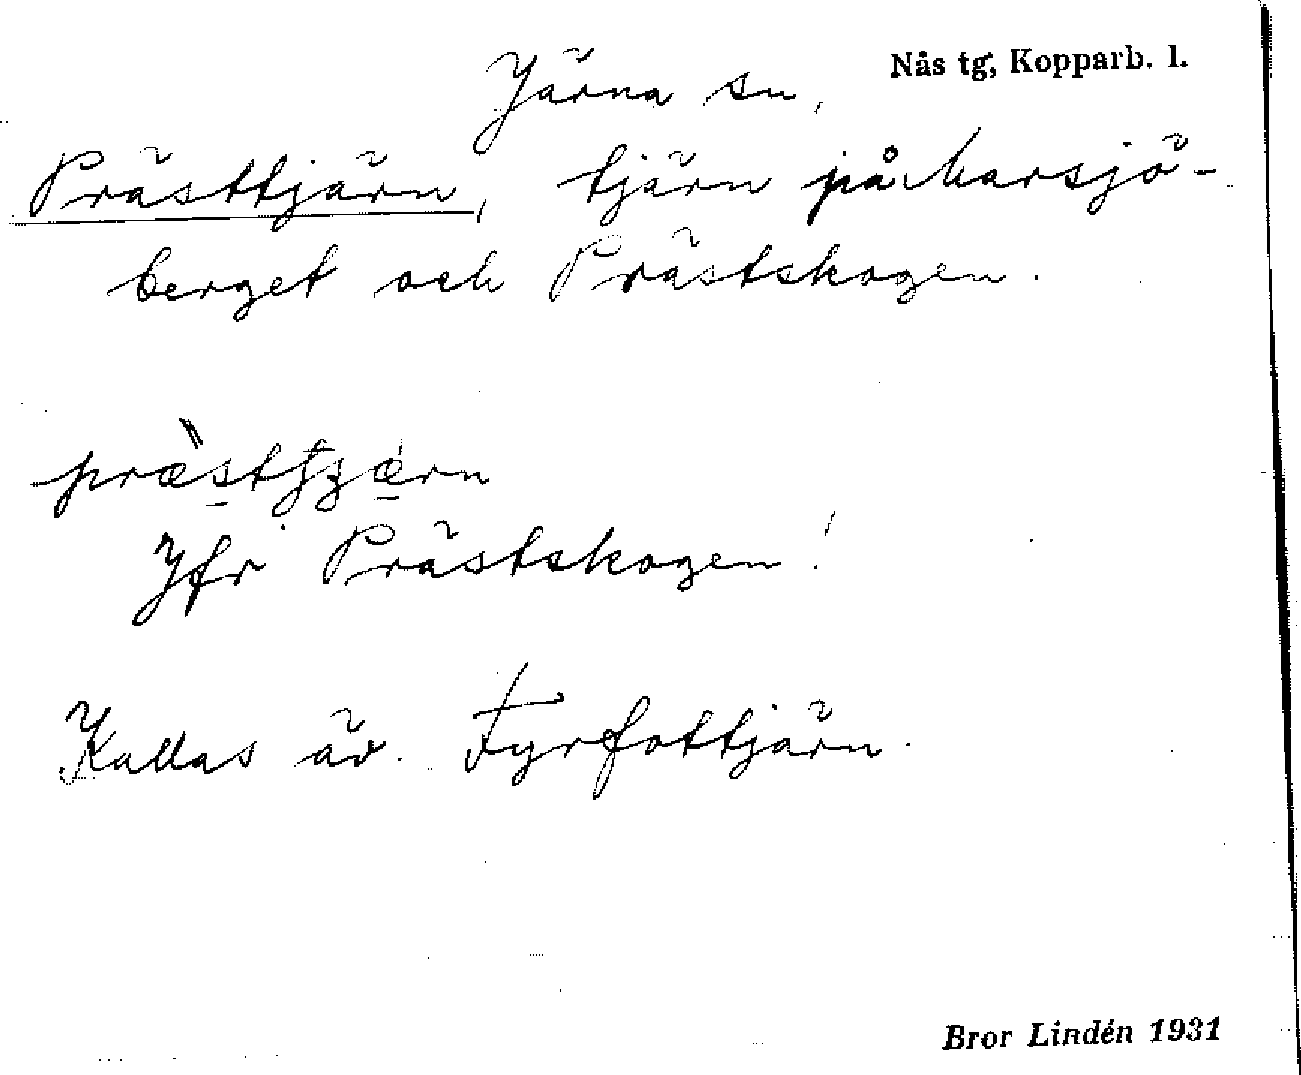 Nås tg, Kopparb. l.
Järna sn,
Prästtjärn, tjärn på Marsjö-
berget och Prästskogen.
Jfr Prästskogen!
Kallas äv. Fyrfottjärn.
Bror Lindén 1931